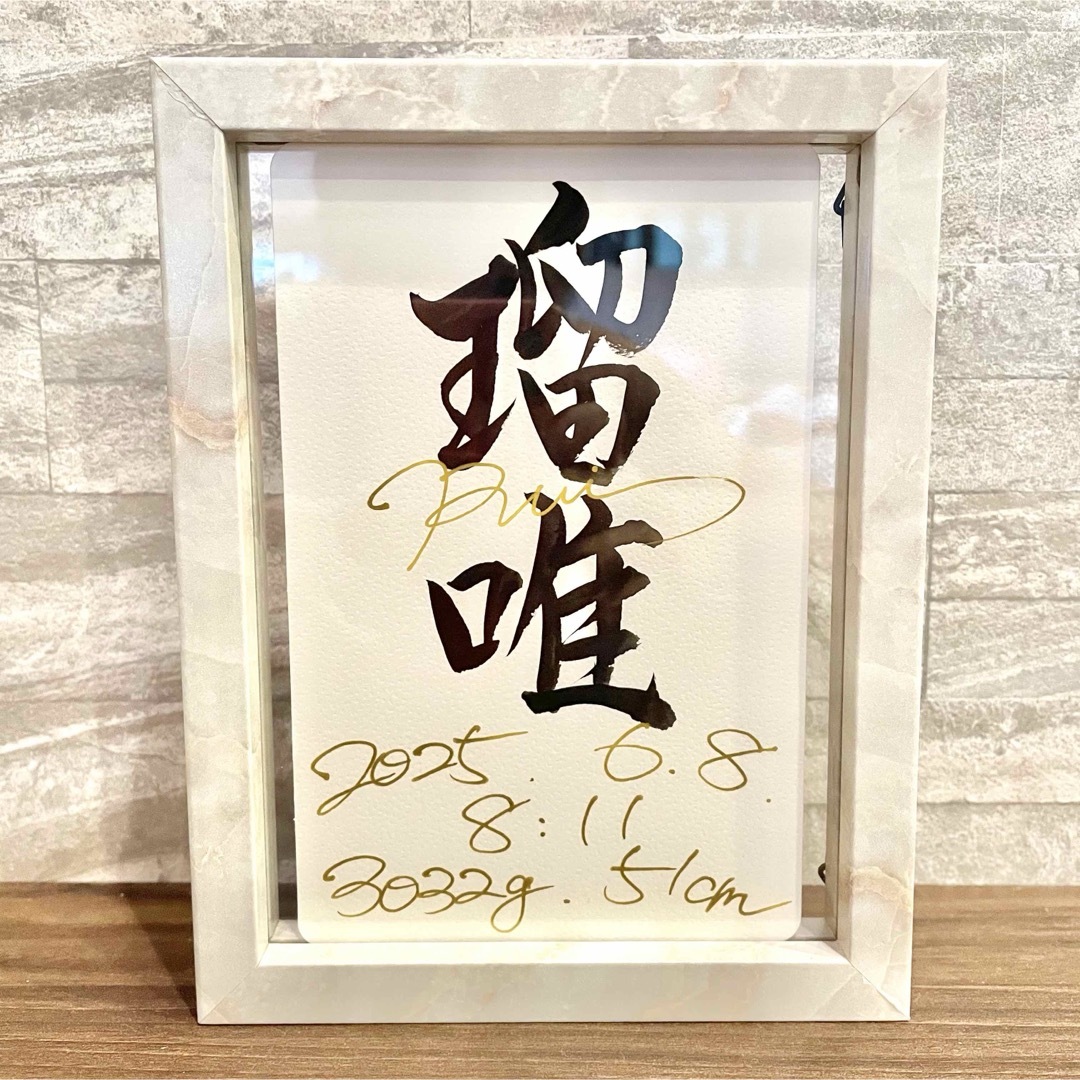 瑠唯
Rui
2025. 6.8.
8:11
3032g. 51cm